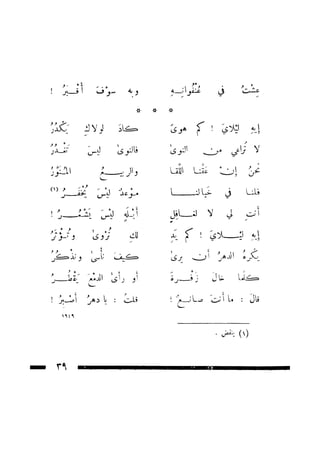 عِشْتُ في عُنْفُوانِهِ وبِه سَوْفَ أُقْبَرُ !
* * *
إيهِ لَيْلايَ ! كم هوىً كادَ لولاكِ يَكْدُرُ
لا تُراعي من النوىٰ فالنوىٰ ليسَ تَغْدُرُ
نحنُ إن عقَّنا اللقا والربيعُ المنوِّرُ
فلنا في خيالنا موعدٌ ليْسَ يُخْفَرُ (١)
أنتِ لي لا لغافلٍ أبْلَهٍ ليْسَ يَشْعُرُ !
إيهِ ليْلايَ ! كم يَدٍ لكِ تُروىٰ وتُؤثَرُ
يكرهُ الدهرُ أن يرىٰ كيفَ نأسىٰ ونذكُرُ
كلما خالَ زفرةً أو رأىٰ الدمعَ يَقْطُرُ
قالَ : ما أنتَ صانعٌ ! قلتُ : يا دهرُ أصْبِرُ !
١٩١٩
(١) ينقض .
٣٩